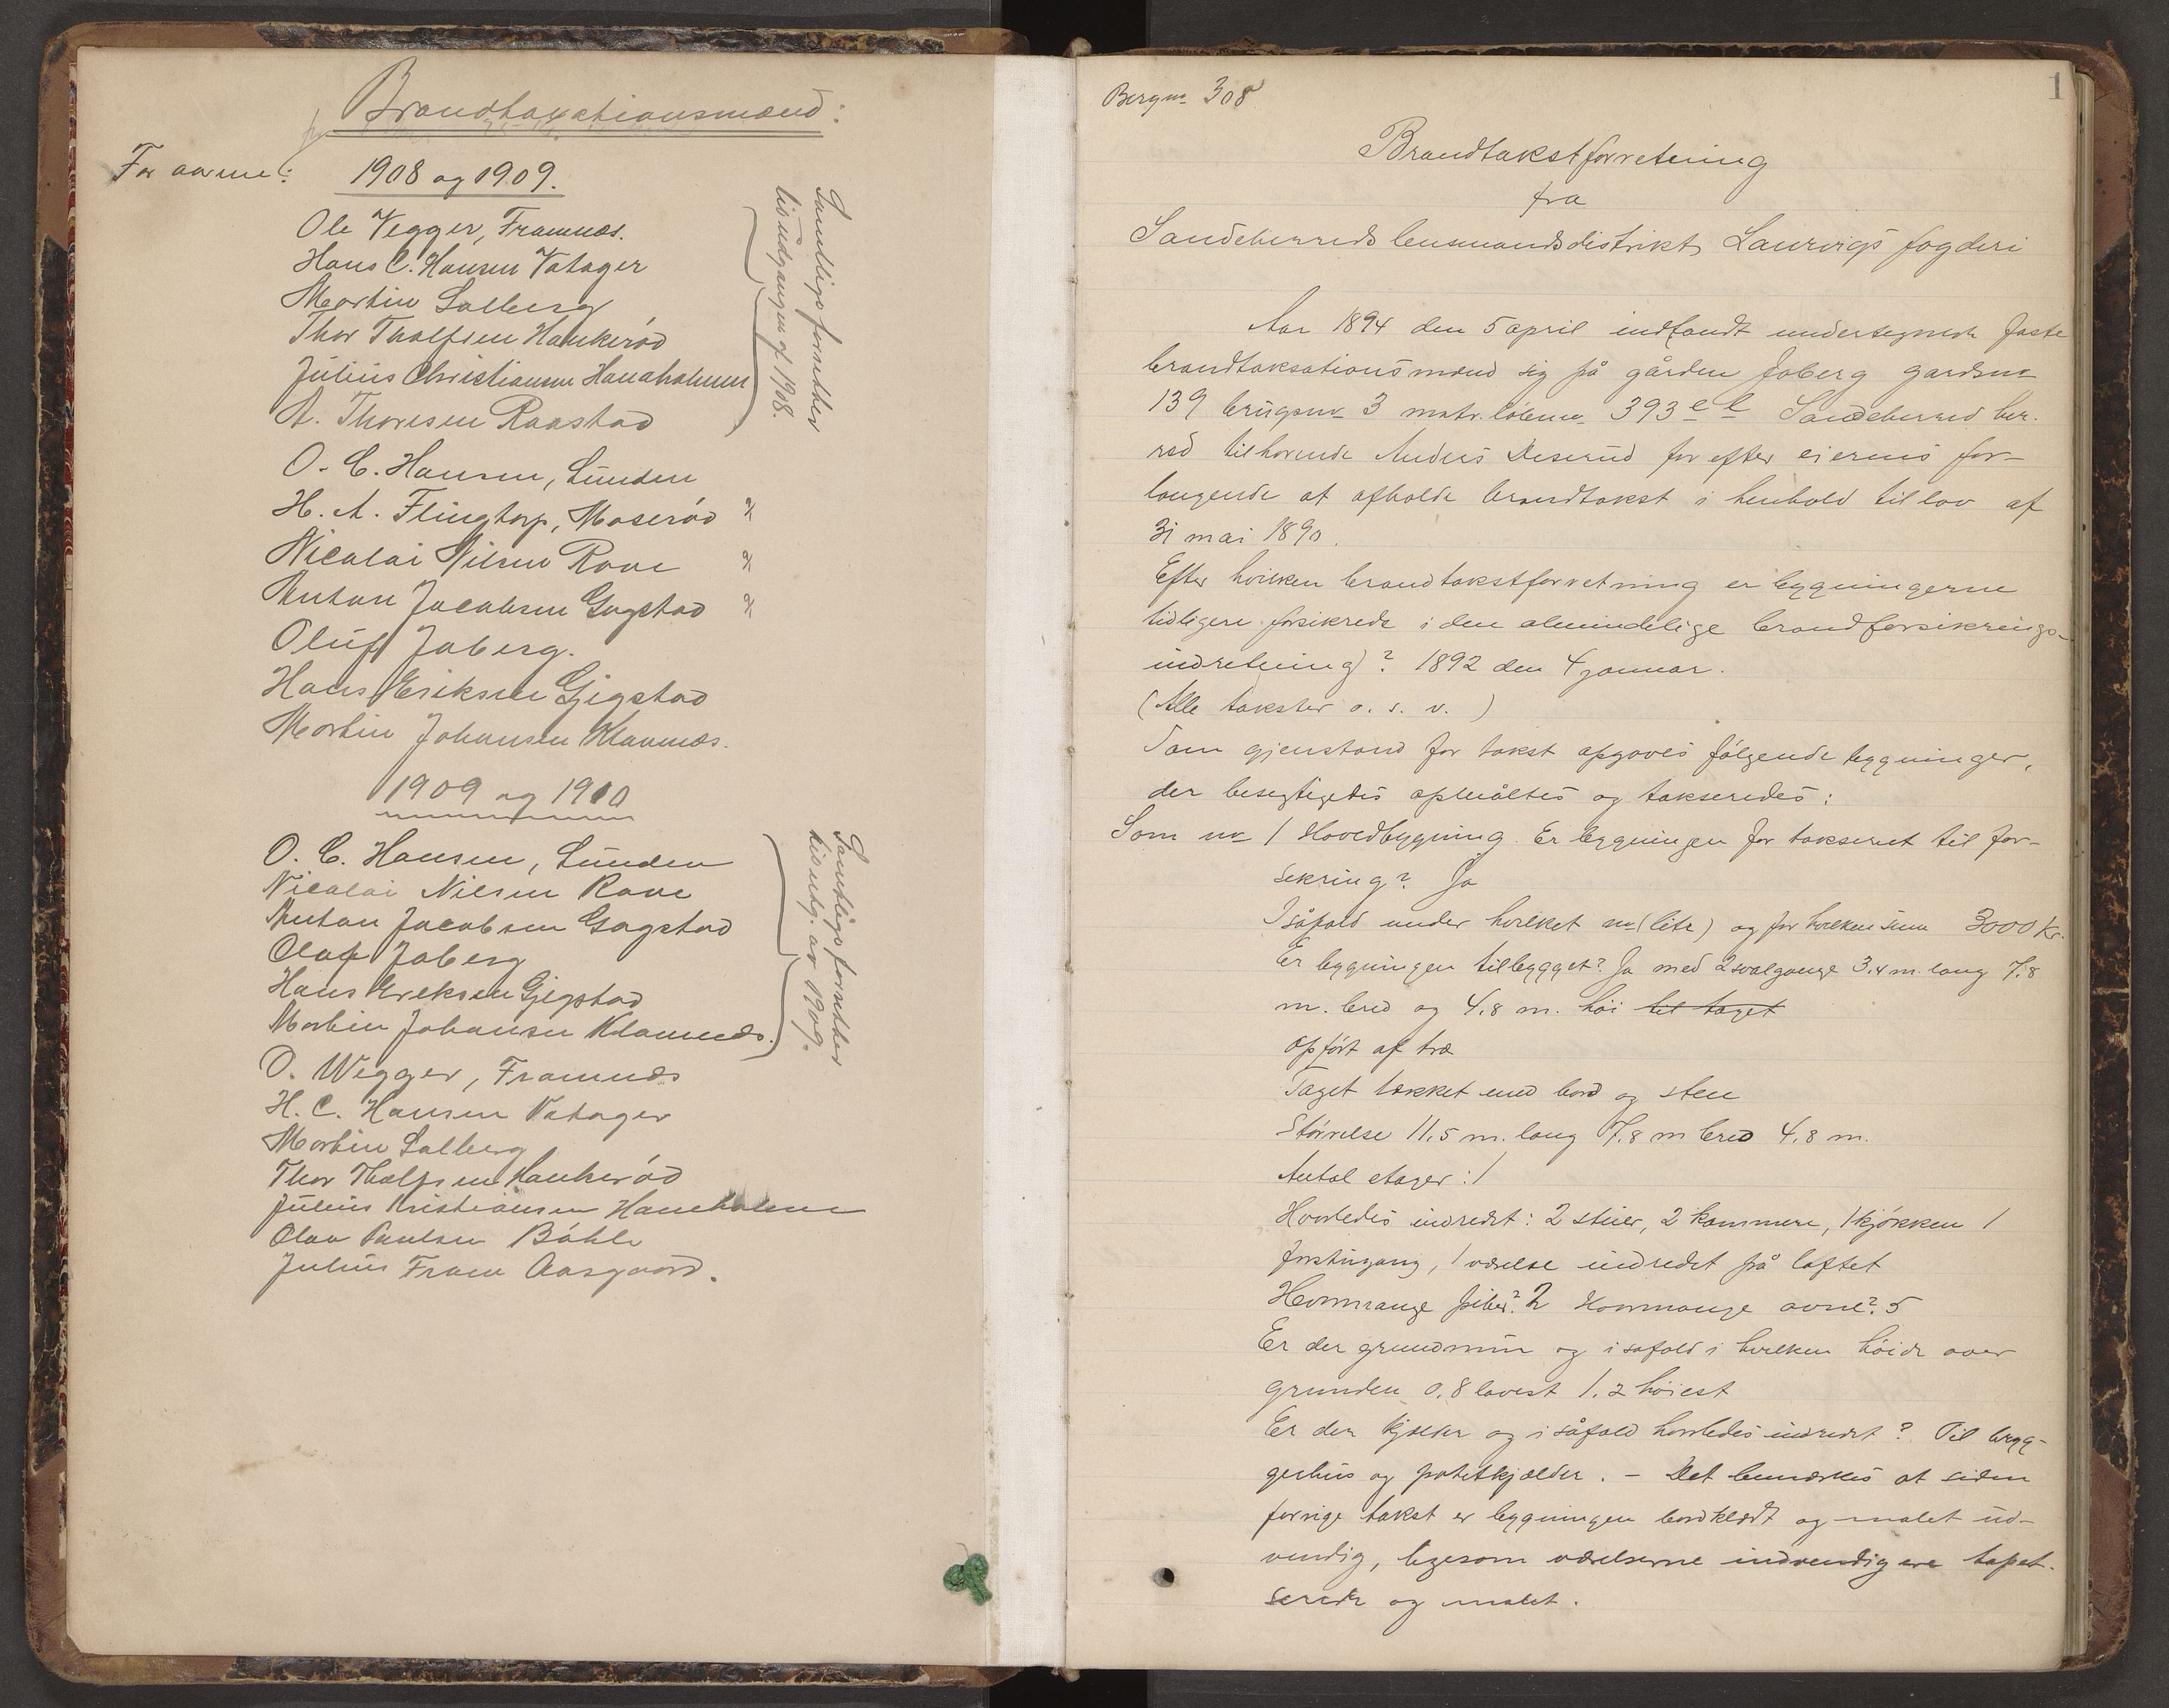 Brandtaxationsmænd:
For aarene: 1908 og 1909.
Ole Vegger, Framnæs.
Hans C. Hansen Vatager
Martin Solberg
Thor Tholfsen Haukerød
Julius Christiansen Haneholmen
A. Thoresen Raastad
Samtlige fortsetter
til udgangen af 1908.
O. C. Hansen, Lunden
H. A. Flingtorp, Moserød
Nicolai Nilsen Rove
Anton Jacobsen Gogstad
Oluf Jaberg.
Hans Eriksen Gjegstad
Martin Johansen Klavnæs.
1909 og 1910
O. C. Hansen, Lunden
Nicolai Nilsen Rove
Anton Jacobsen Gogstad
Oluf Jaberg
Hans Ereksen Gjegstad
Martin Johansen Klavnæs.
Samtlige fortsetter
til utg. av 1909.
O. Wegger, Framnæs
H. C. Hansen Vatager
Martin Solberg
Thor Tholfsen Haukerød
Julius Kristiansen Haneholmen
Olav Paulsen Bøhle
Julius Fram Aasgaard.
1
Bergnr 308
Brandtakstforretning
fra
Sandeherreds lensmandsdistrikt, Laurvigs fogderi
Aar 1894 den 5 april indfandt undertegnede faste
brandtaksationsmænd sig på gården Jaberg gardsnr
139 brugsnr 3 matr. løbenr 393 e l Sandeherred her-
red tilhørende Anders Deserud for efter eierens for-
langende at afholde brandtakst i henhold til lov af
31 mai 1890.
Efter hvilken brandtakstforretning er bygningerne
tidligere forsikrede i den almindelige brandforsikrings-
indretning)? 1892 den 4 januar.
(Alle takster o. s. v.)
Som gjenstand for takst opgaves følgende bygninger,
der besigtigedes opmåltes og takseredes:
Som nr 1 Hovedbygning. Er bygningen før takseret til for-
sekring? Ja
I såfald under hvilket nr (litr) og for hvilken sum 3000 Kr.
Er bygningen tilbygget? Ja med 2 svalgange 3.4 m. lang 7.8
m. bred og 4.8 m. høi til taget
Opført af træ
Taget tækket med bord og sten
Størrelse 11.5 m. lang 7.8 m bred 4.8 m.
Antal etager: 1
Hvorledes indredet: 2 stuer, 2 kammere, 1 kjøkken 1
forstugang, 1 værelse indredet på loftet
Hvormange piber? 2 Hvormange ovne? 5
Er der grundmur og i såfald i hvilken høide over
grunden 0.8 lavest 1.2 høiest
Er der kjelder og i såfald hvorledes indredet? Til bryg-
gerhus og potetkjælder. - Det bemærkes at siden
forrige takst er bygningen bordklædt og malet ud-
vendig, ligesom værelserne indvendig ere tapet-
serede og malet.